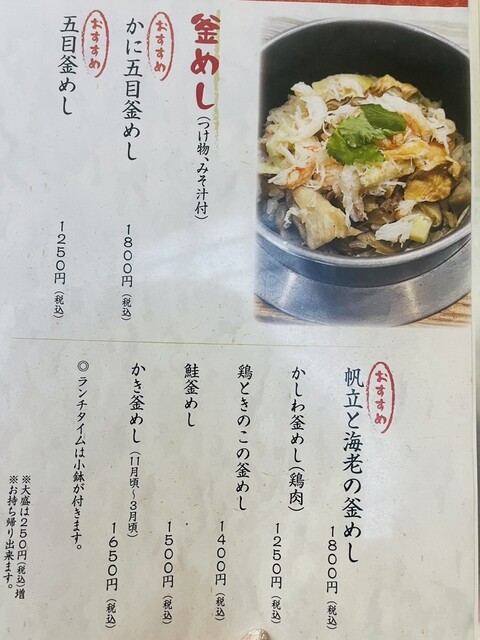 釜めし(つけ物、みそ汁付)
おすすめ
かに五目釜めし 1800円(税込)
おすすめ
五目釜めし 1250円(税込)
おすすめ
帆立と海老の釜めし 1800円(税込)
かしわ釜めし(鶏肉) 1250円(税込)
鶏ときのこの釜めし 1400円(税込)
鮭釜めし 1500円(税込)
かき釜めし(11月頃～3月頃) 1650円(税込)
◎ランチタイムは小鉢が付きます。
※大盛は250円(税込)増
※お持ち帰り出来ます。